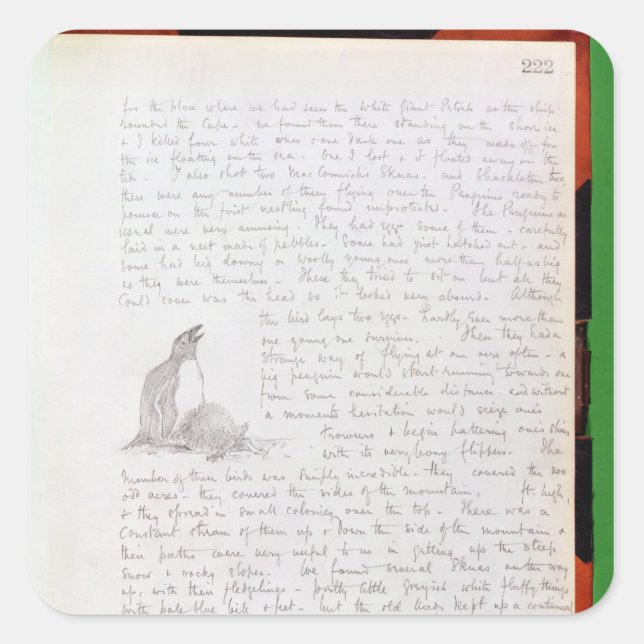 222
for the place where we had seen the White Giant Petrels as the ship
rounded the Cape - we found them there standing on the shore ice
& I killed four white ones & one dark one as they made off for
the ice floating on the sea - One I lost & it floated away on the
I also shot two MacCormick's Skuas - and Shackleton two,
there were any number of them flying over the Penguins ready to
pounce on the first nestling found unprotected - The Penguins as
usual were very amusing. They had eggs some of them - carefully
laid in a nest made of pebbles - Some had just hatched out - and
some had big downy or woolly young ones more than half as big
as they were themselves - These they tried to sit on but all they
Could cover was the head so it looked very absurd - Although
the bird lays two eggs - hardly ever more than
one young one survives. Then they had a
strange way of flying at one very often - a
big penguin would start running towards one
from some considerable distance and without
a moments hesitation would seize one's
trowsers & begin battering one's shins
with its very bony flippers - The
number of these birds was simply incredible - they covered the 200
odd acres - they covered the sides of the mountain, ft. high,
& they spread in small colonies over the top - There was a
Constant stream of them up & down the side of the mountain &
their paths were very useful to us in getting up the steep
snow & rocky slopes - We found several Skuas on the way
up, with their fledgelings - pretty little greyish white fluffy things
with pale blue bill & feet - but the old birds kept up a continual